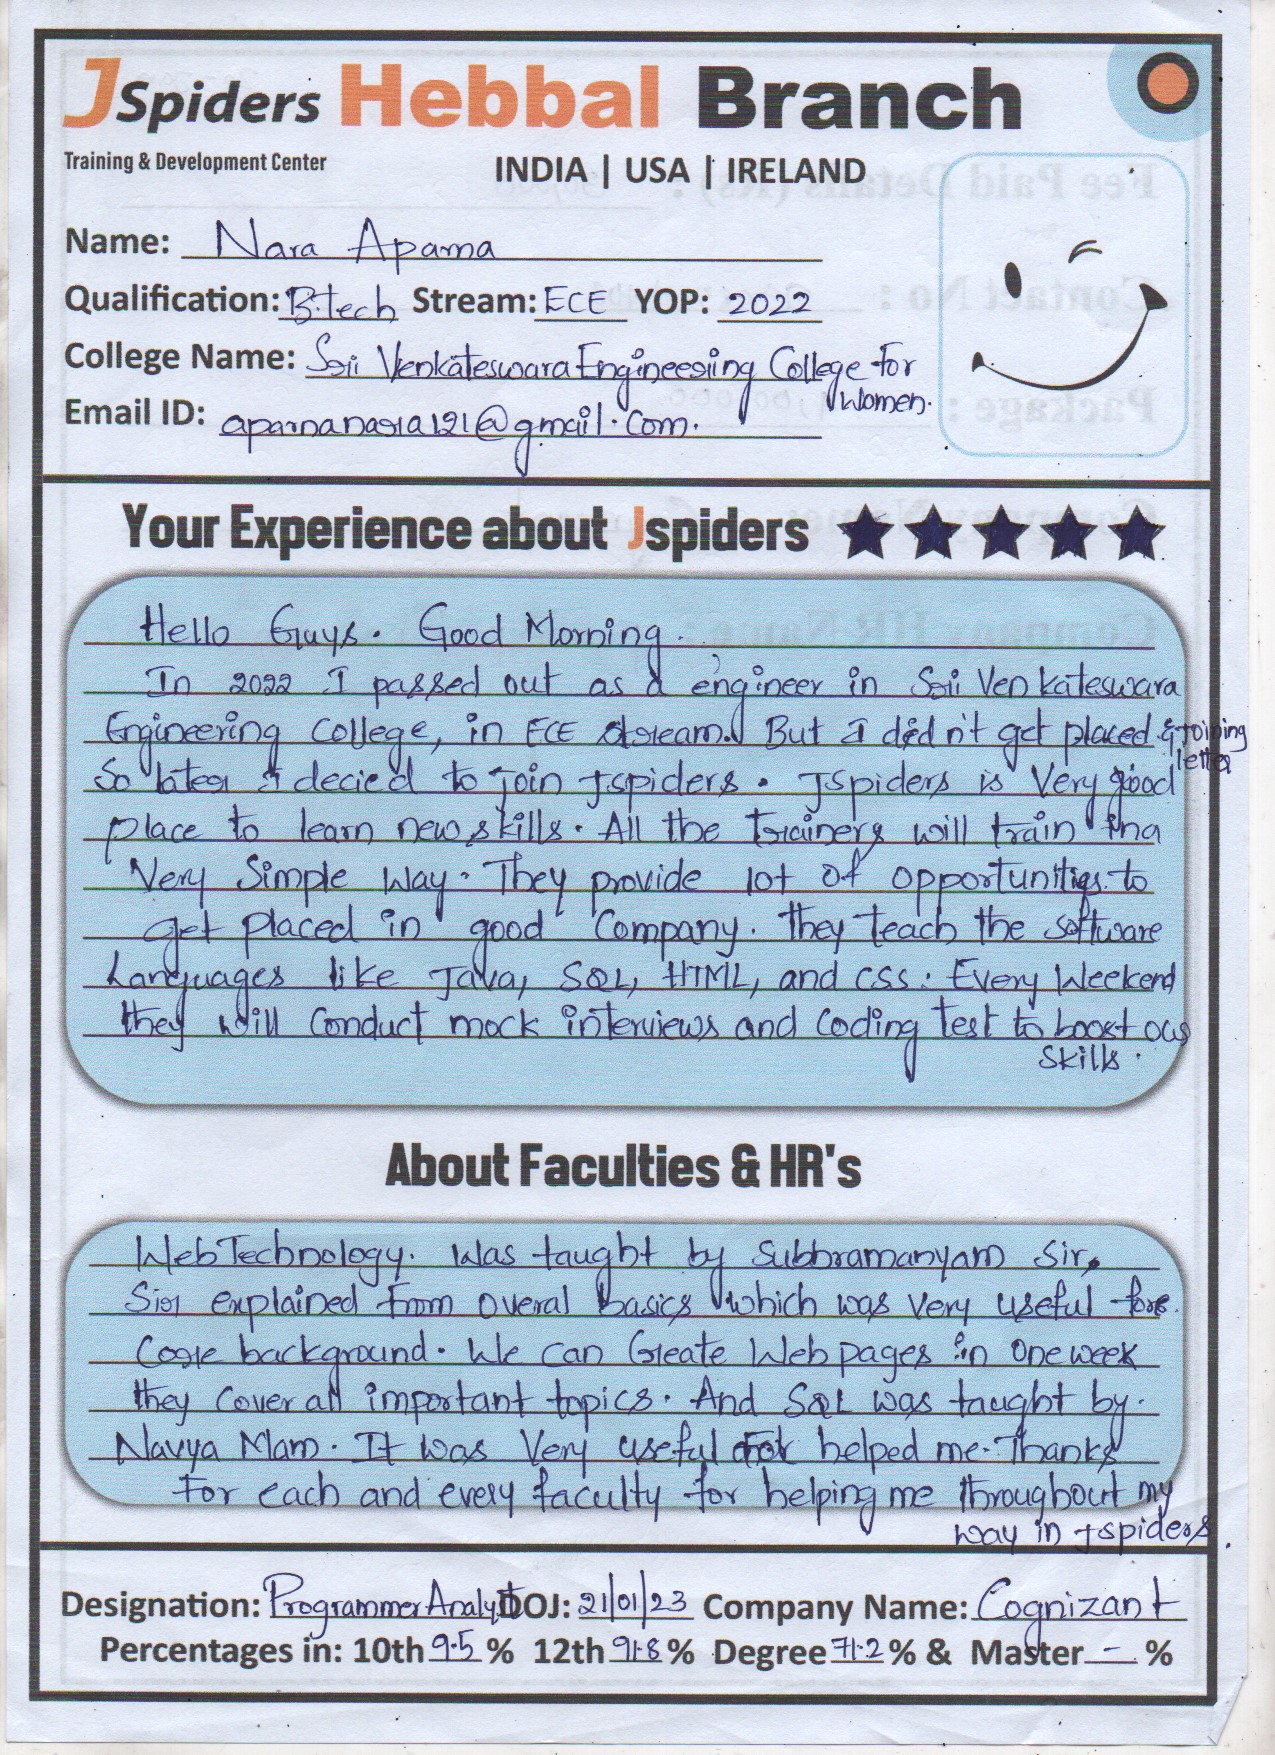 JSpiders Hebbal Branch
Training & Development Center
INDIA | USA | IRELAND
Name: Nara Aparna
Qualification: B.tech Stream: ECE YOP: 2022
College Name: Sri Venkateswara Engineering College For
Women.
Email ID: aparnanara121@gmail.com.
Your Experience about Jspiders
Hello Guys. Good Morning.
In 2022 I passed out as a engineer in Sri Venkateswara
Engineering College, in ECE stream. But I didn't get placed & joining
letter
So later I decied to join Jspiders. JSpiders is Very good
place to learn new skills. All the trainers will train in a
Very Simple Way. They provide lot of opportunities to
get placed in good Company. they teach the software
Languages like Java, SQL, HTML, and CSS. Every Weekend
they will Conduct mock interviews and Coding test to boost our
Skills.
About Faculties & HR's
Web Technology. Was taught by Subbramanyam Sir,
Sir explained from overal basics which was very useful for
Core background. We can Create Web pages in one week
they cover all important topics. And SQL was taught by.
Navya Mam. It was Very useful helped me. Thanks
For each and every faculty for helping me throughout my
way in Jspiders.
Designation: Programmer Analyst DOJ: 21/01/23 Company Name: Cognizant
Percentages in: 10th 9.5 % 12th 91.8 % Degree 71.2 % & Master - %